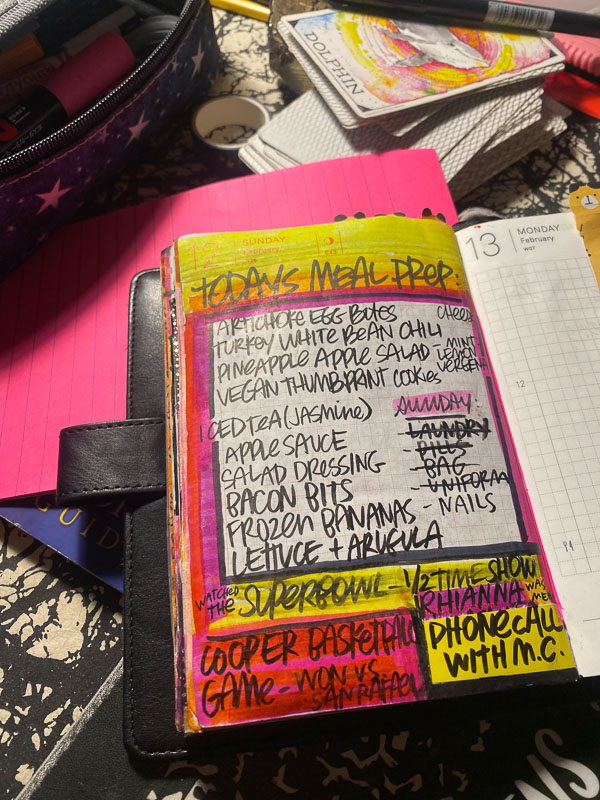 DOLPHIN
12
SUNDAY
13
MONDAY
February
TODAYS MEAL PREP:
ARTICHOKE EGG BITES
TURKEY WHITE BEAN CHILI
PINEAPPLE APPLE SALAD - MINT
LEMON
VERBENA
VEGAN THUMBPRINT COOKIES
ICED TEA (JASMINE)
APPLE SAUCE
SALAD DRESSING
BACON BITS
FROZEN BANANAS
LETTUCE + ARUGULA
SUNDAY:
- LAUNDRY
- BILLS
- BAG
- UNIFORM
- NAILS
WATCHED
THE SUPERBOWL - 1/2 TIME SHOW
RHIANNA WAS
MEH
COOPER BASKETBALL
GAME - WON VS
SAN RAFAEL
PHONE CALL
WITH M.C.
12
GUID
ENS